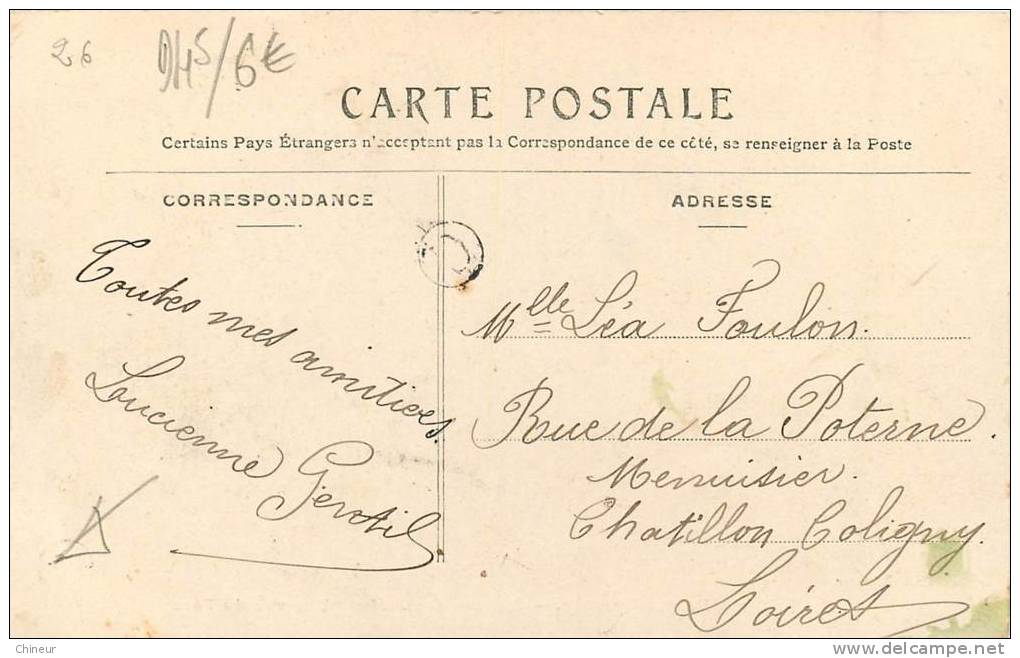 26
945/6€
CARTE POSTALE
Certains Pays Étrangers n'acceptent pas la Correspondance de ce côté, se renseigner à la Poste
CORRESPONDANCE
Toutes mes amitiées.
Lucienne
ADRESSE
Mlle Léa Foulon.
Rue de la Poterne.
Menuisier.
Chatillon Coligny.
Loiret
Chineur
delcampe.net